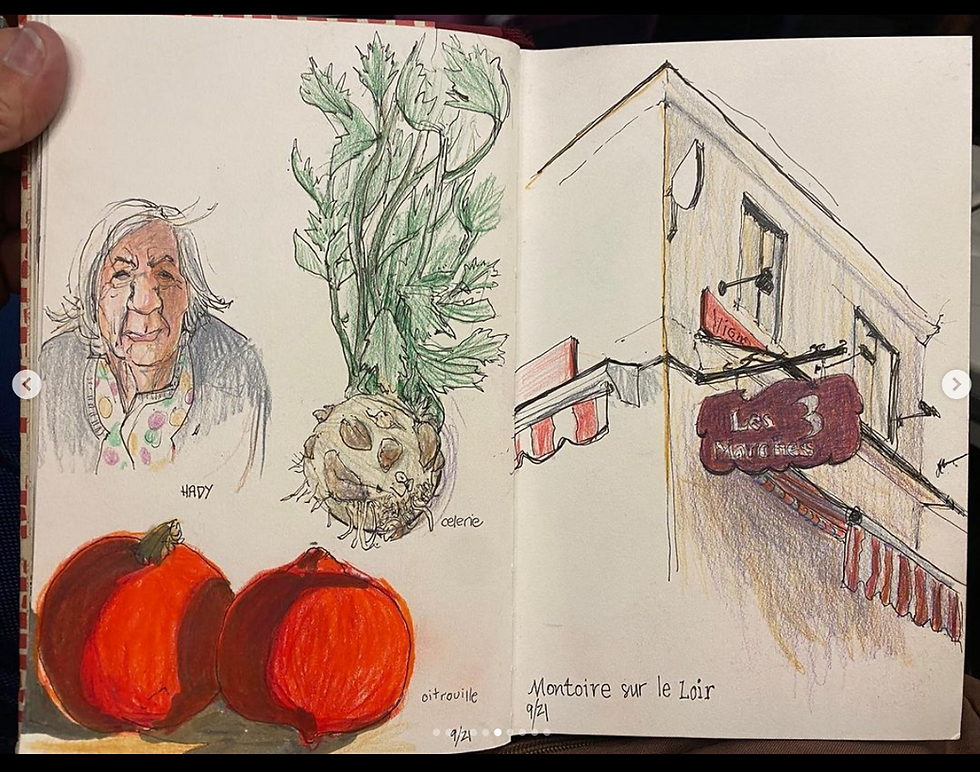 HADY
celerie
oitrouille
9/21
Les 3
Marches
Montoire sur le Loir
9/21